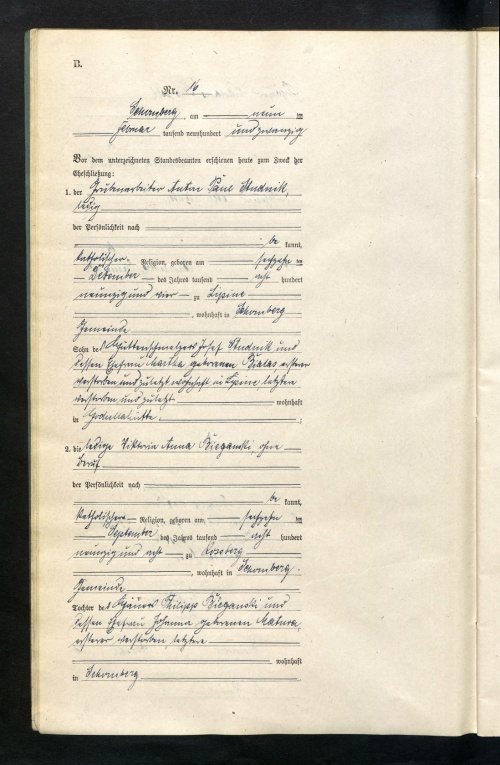 B.
Nr. 16
Schomberg, am neun ten
Februar tausend neunhundert und zwanzig
Vor dem unterzeichneten Standesbeamten erschienen heute zum Zweck der
Eheschließung:
1. der Grubenarbeiter Anton Paul Studnik,
ledig
der Persönlichkeit nach
be kannt,
katholischer Religion, geboren am sechzehn ten
Dezember des Jahres tausend acht hundert
neunzig und vier zu Lipine
, wohnhaft in Schomberg
Gemeinde
Sohn des Hüttenschmelzers Josef Studnik und
dessen Ehefrau Martha geborenen Bialas, ersterer
verstorben und zuletzt wohnhaft in Lipine letztere
verstorben und zuletzt wohnhaft
in Godullahütte
2. die ledige Viktoria Anna Bieganski, ohne
Beruf
der Persönlichkeit nach
be kannt,
katholischer Religion, geboren am sechzehn ten
September des Jahres tausend acht hundert
neunzig und acht zu Rossberg
, wohnhaft in Schomberg
Gemeinde
Tochter des Häuers Philipp Bieganski und
dessen Ehefrau Johanna geborenen
ersterer verstorben, letztere
wohnhaft
in Schomberg